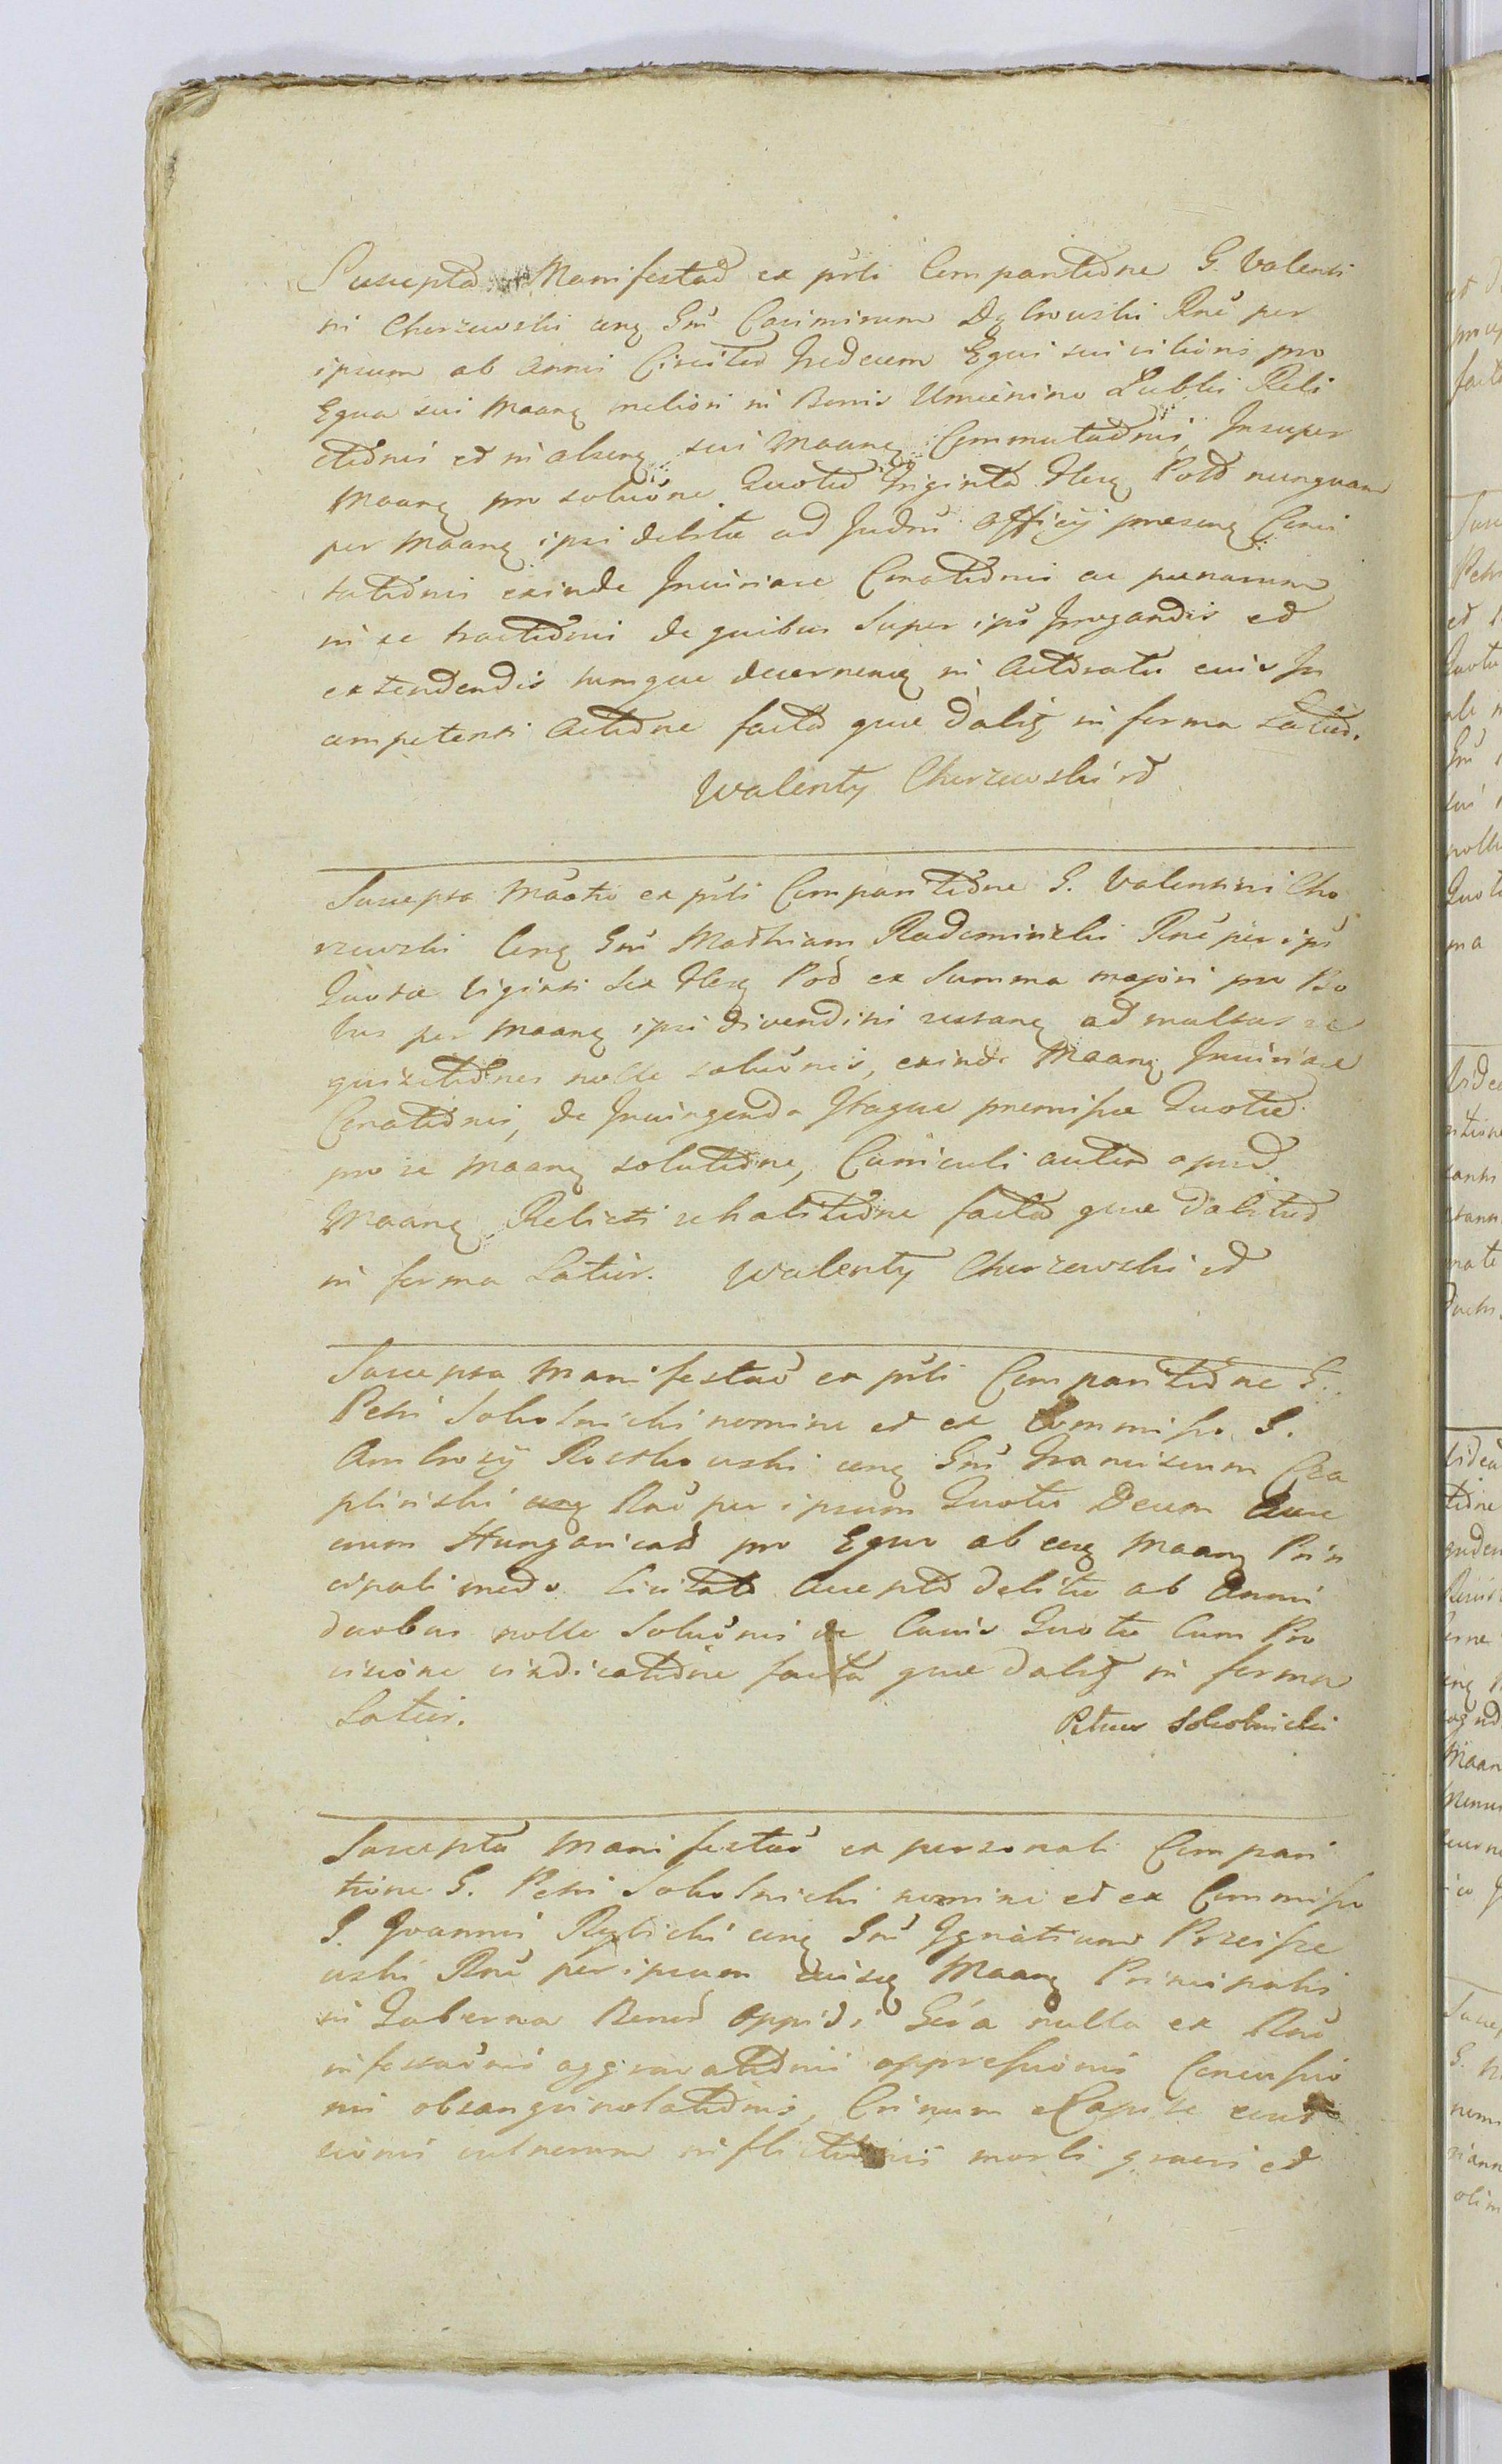 Suscepta Manifestaō ex pr̄li Comparitione G. Valenti
ni Chorzewski cnq Gm̄ Casimirum Dąbrowski Rnē per
ipsum ab Annis Circiter Tredecem Equi sui vilioris pro
Equa sui Maanq meliori in Bonis Umienino Lubki Reli
ctionis et in absenq sui Maanq Commutationis Insuper
Maanq pro solutione Quotae Triginta flenq Pold nunquam
per Maanq ipsi debitae ad Judm̄ Officij praesenq
tationis exinde Injuriae Conationis ac paenarum
in se tractionis de quibus super ips̄ Irrogandis et
extendendis tumque decernenq in Actoratu eius In
competenti Actione facta que dabitg in forma Latiori.
Walenty Chorzewski rd
Suscepta Maātio ex pr̄li Comparitione G. Valentini Cho
rzewski Cenq Gm̄ Mathiam Radominski Rnē per ips̄
Quotae Viginti Sex flenq Pod ex Summa majori pro Bo
bus per Maanq ipsi divenditi restanq ad multas re
quisitiones nolle solutionis, exinde Maanq Injuriae
Conationis, de Injungenda Itaque premissae Quotae
pro se Maanq solutione, Cuniculi autem apud
Maanq Relicti rehabitione facta que dabitur
in forma Latiori. Walenty Chorzewski rd
Suscepta Manifestaō ex pr̄li Comparitione G.
Petri Sokolnicki nomine et ex Commisso G.
Ambrosij Rostkowski cenq Gm̄ Franciscum Cza
plinski Rnē per ipsum Quotae Decem Aure
orum Hungaricad pro Equo ab enq Maanq Prin
cipali modo Licitato Accepto debitae ab Annis
duobus nolle Solutionis de Cuius Quotae Cum Pro
visione vindicatione facta que dabitg in forma
Latiori. Petrus Sokolnicki
Suscepta Manifestaō ex personali Compari
tione G. Petri Sokolnicki nomine et ex Commisso
G. Joannis Rybicki cenq Gm̄ Ignatium
Rnē per ipsum eiusq Maanq Principalis
in Taberna Bonod Oppidi Góra nulla ex Rnē
infestaōnis aggravationis oppressionis Concussio
nis obsanguinolationis, Crinum e Capite evul
sionis vulnerum inflictionis morbi gravis et